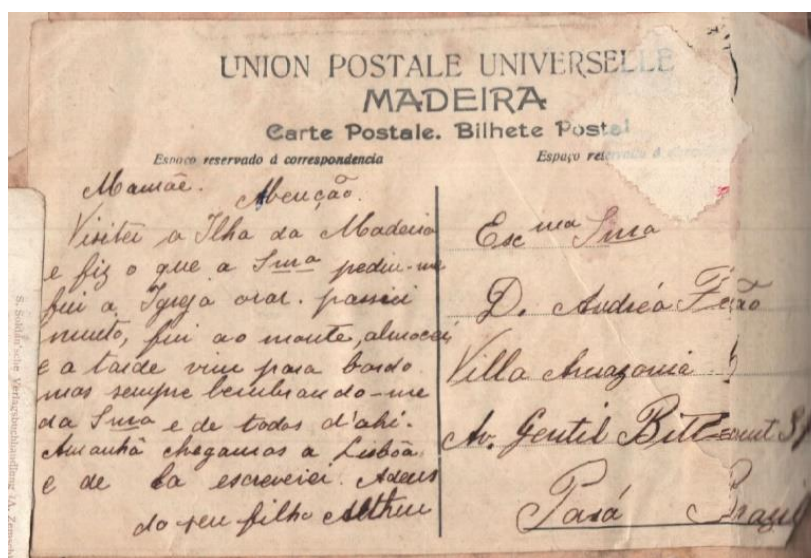 UNION POSTALE UNIVERSELLE
MADEIRA
Carte Postale. Bilhete Postal
Espaço reservado á correspondencia
Espaço
Mamãe. Abenção.
Visitei a Ilha da Madeira
e fiz o que a Snra pediu-me
fui a Igreja orar. passiei
muito, fui ao monte, almocei
e a tarde vim para bordo
mas sempre lembrando-me
da Snra e de todos d'ahi.
Amanhã chegamos a Lisbôa
e de la escreverei. Adeus
do seu filho Arthur
Excma Snra
D. Andréa
Villa Amazonia
Av. Gentil Bittencourt
Pará Brazil
S. Soldan'sche Verlagsbuchhandlung (A.